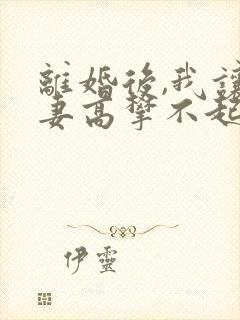 離婚後,我讓
妻高攀不起
伊靈